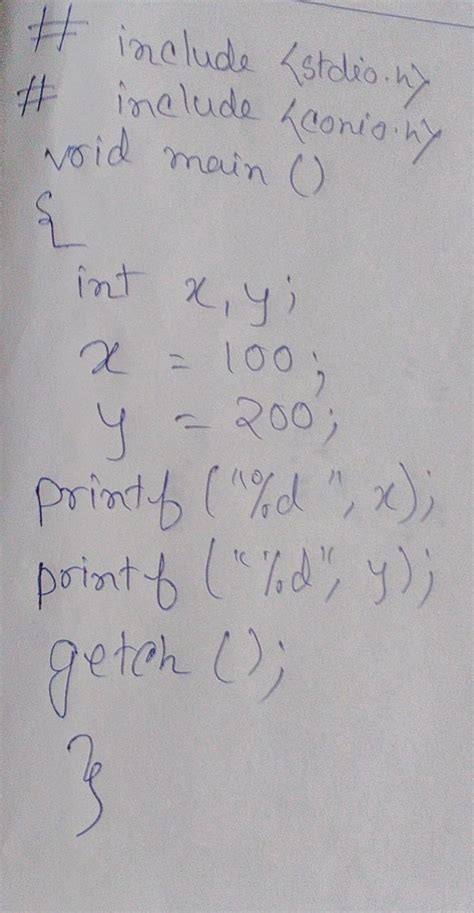 # include <stdio.h>
# include <conio.h>
void main ()
{
int x, y;
x = 100;
y = 200;
printf ("%d ", x);
printf ("%d", y);
getch ();
}